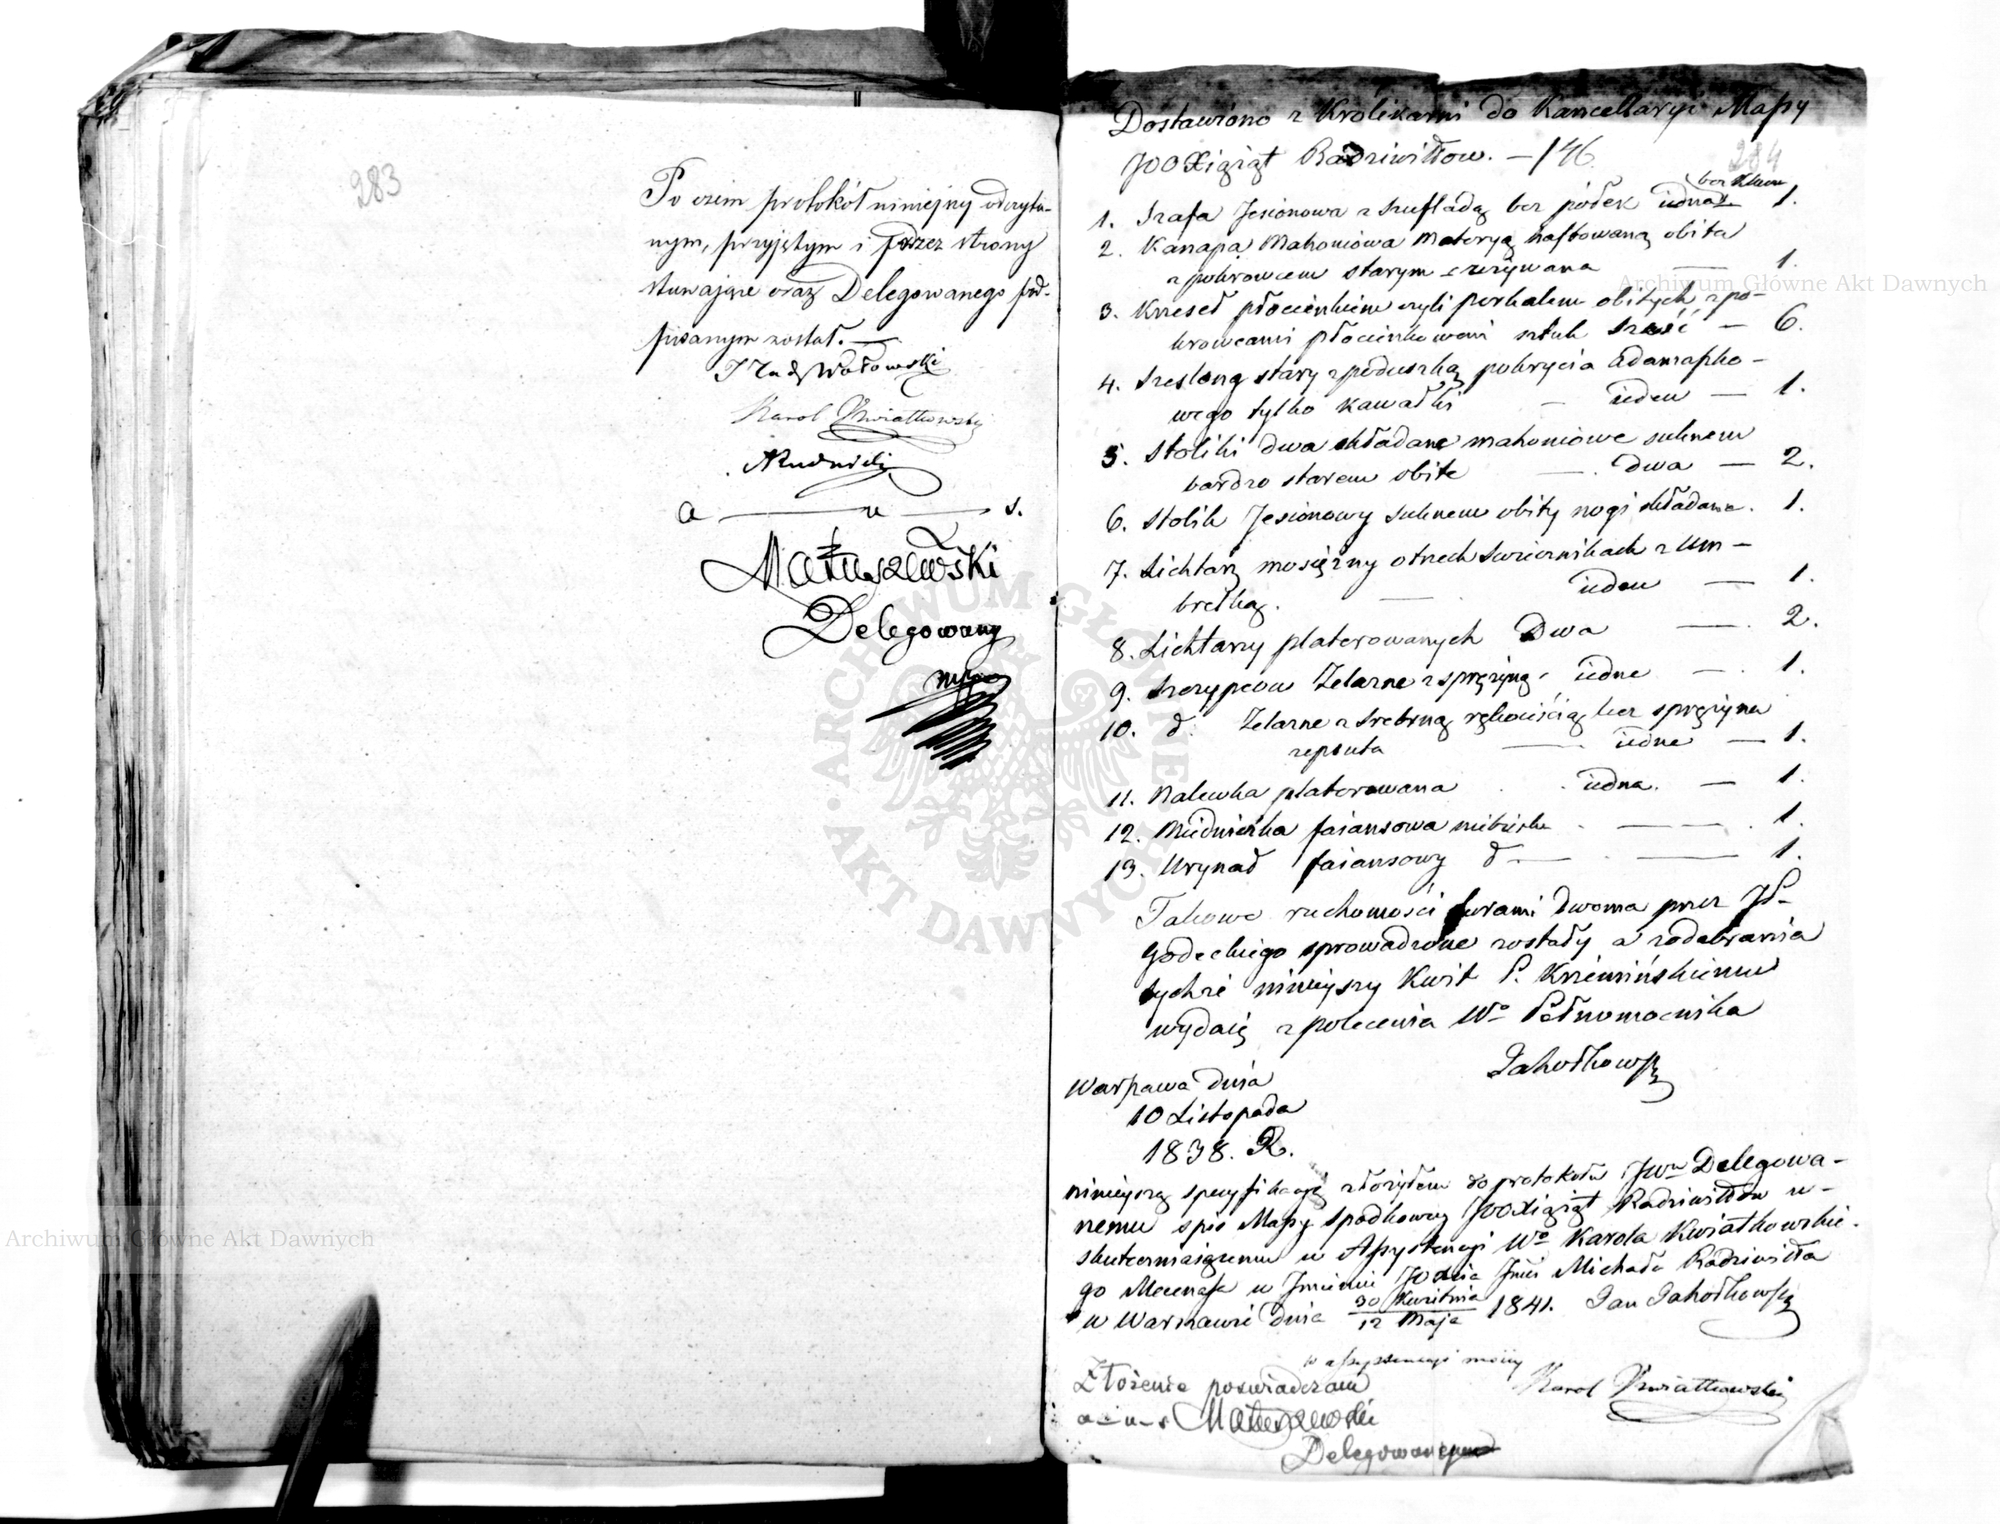 283
Po czem protokół niniejszy odczyta-
nym, przyjętym i przez strony
stawające oraz Delegowanego pod-
pisanym został. —
Wołowski
Karol Kwiatkowski
Rudnicki
a — u — s.
Matuszewski
Delegowany
mp
Dostawiono z Krolikarni do Kancellaryi Massy
JOOXiążąt Radziwiłłow. — 146.
284
bez klucza
1. Szafa Jesionowa z szufladą bez półek iedna 1.
2. Kanapa Mahoniowa materyą haftowaną obita
z pokrowcem starym zszywana — 1.
3. Krzeseł płócienkiem czyli perkalem obitych z po-
krowcami płócienkowemi sztuk sześć — 6.
4. Szeslong stary z poduszką, pokrycia adamaszko-
wego tylko kawałki — ieden — 1.
5. Stoliki dwa składane mahoniowe suknem
bardzo starem obite — dwa — 2.
6. Stolik Jesionowy suknem obity nogi składane. 1.
7. Lichtarz mosiężny o trzech świecznikach z Um-
brelką. — ieden — 1.
8. Lichtarzy platerowanych Dwa — 2.
9. Szczypców Żelazne z sprężyną iedne — 1.
10. d: Żelazne z srebrną rękoiścią bez sprężyny
zepsuta — iedne — 1.
11. Nalewka platerowana iedna. — 1.
12. Miedniczka faiansowa niebieska — 1.
13. Urynał faiansowy d — 1.
Takowe ruchomości furami dwoma przez JP.
Godeckiego sprowadzone zostały a z odebrania
tychże ninieyszy Kwit P. Krzemińskiemu
wydaię z polecenia Wo Pełnomocnika
Jakołkowski
Warszawa dnia
10 Listopada
1838. R.
ninieyszą specyfikacyę złożyłem do protokołu JWu Delegowa-
nemu spis Massy Spadkowey JOOXiążąt Radziwiłłów u-
skuteczniaiącemu w Assystencyi Wo Karola Kwiatkowskie-
go Mecenasa w Imieniu JOXcia Jmci Michała Radziwiłła
w Warszawie dnia 30 Kwietnia / 12 Maja 1841. Jan Jakołkowski
w assystencyi moiey
Złożenie poswiadczam Karol Kwiatkowski
a — u — s Matuszewski
Delegowany
Archiwum Główne Akt Dawnych
Archiwum Główne Akt Dawnych
ARCHIWUM GŁÓWNE AKT DAWNYCH